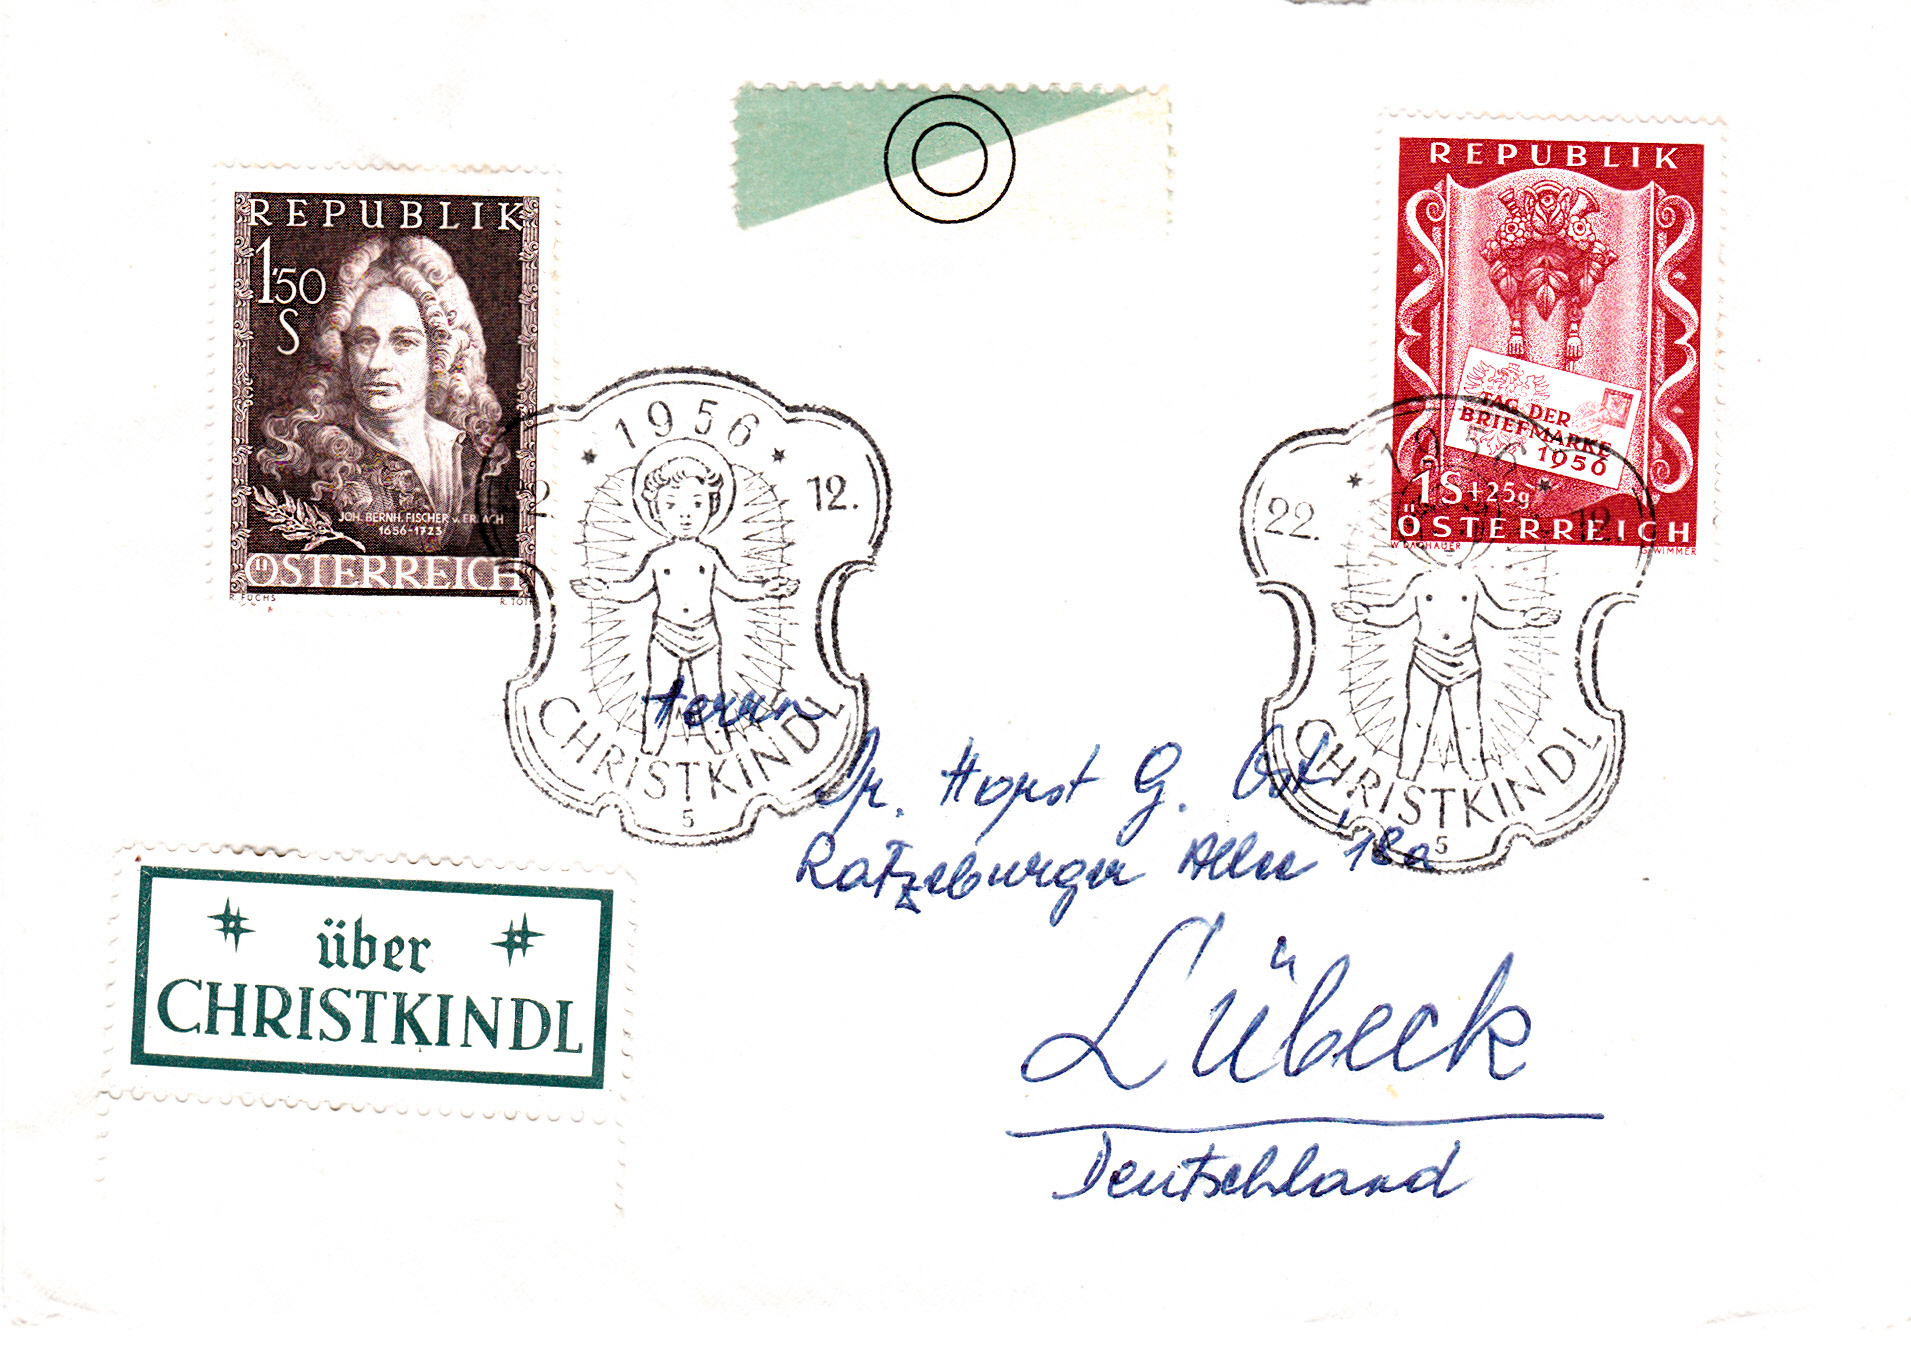 REPUBLIK
1'50
S
JOH. BERNH. FISCHER v. ERLACH
1656-1723
ÖSTERREICH
R. FUCHS R. TOTH
REPUBLIK
TAG DER
BRIEFMARKE
1956
1S+25g
ÖSTERREICH
W. DACHAUER G. WIMMER
1956
22. 12.
CHRISTKINDL
5
1956
22. 12.
CHRISTKINDL
5
Herrn
Dr. Horst G. Ost
Ratzeburger Allee 18a
Lübeck
Deutschland
über
CHRISTKINDL